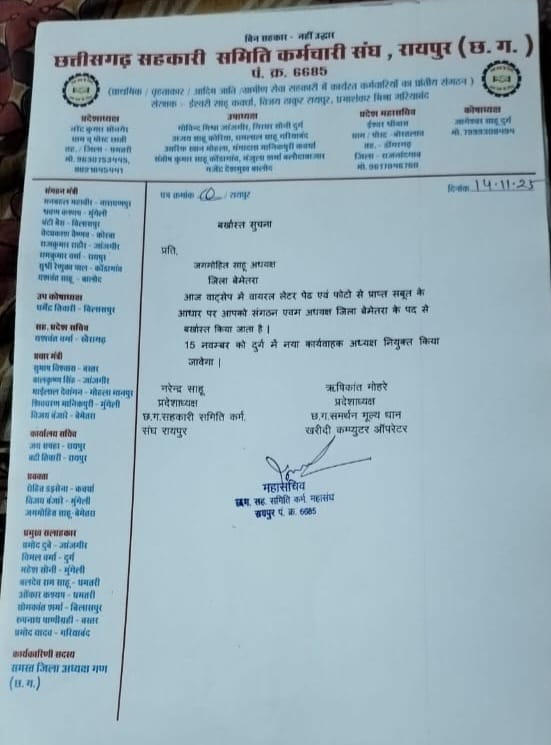 बिन सहकार - नहीं उद्धार
छत्तीसगढ़ सहकारी समिति कर्मचारी संघ , रायपुर ( छ. ग. )
पं. क्र. 6685
(प्राथमिक / वृहताकार / आदिम जाति /ग्रामीण सेवा सहकारी में कार्यरत कर्मचारियों का प्रांतीय संगठन )
संरक्षक - ईश्वरी साहू कवर्धा, विजय ठाकुर रायपुर, प्रभाशंकर मिश्रा गरियाबंद
प्रदेशाध्यक्ष
नरेंद्र कुमार
मो. 9630753445,
उपाध्यक्ष
गोविन्द मिश्रा जांजगीर, गिरधर सोनी दुर्ग
अजय साहू कोरिया, रामलाल साहू गरियाबंद
संतोष कुमार साहू कोंडागांव, मंजुला शर्मा बलौदाबाजार
गजेंद्र देशमुख बालोद
प्रदेश महासचिव
ईश्वर श्रीवास
तह. - डोंगरगढ़
जिला - राजनांदगांव
कोषाध्यक्ष
जागेश्वर साहू दुर्ग
पत्र क्रमांक / रायपुर
दिनांक 14.11.25
बर्खास्त सुचना
प्रति,
जगमोहित साहू अध्यक्ष
जिला बेमेतरा
आज वाट्सेप में वायरल लेटर पेड एवं फोटो से प्राप्त सबूत के
आधार पर आपको संगठन एवम अध्यक्ष जिला बेमेतरा के पद से
बर्खास्त किया जाता है |
15 नवम्बर को दुर्ग में नया कार्यवाहक अध्यक्ष नियुक्त किया
जावेगा |
नरेन्द्र साहू
प्रदेशाध्यक्ष
छ.ग.सहकारी समिति कर्म.
संघ रायपुर
ऋषिकांत मोहरे
प्रदेशाध्यक्ष
छ.ग.समर्थन मूल्य धान
खरीदी कम्प्युटर ऑपरेटर
महासचिव
छ.ग. सह. समिति कर्म. महासंघ
रायपुर पं. क्र. 6685
संगठन मंत्री
मनबहल महावीर - नारायणपुर
श्रवण कश्यप - मुंगेली
बंटी बैस - बिलासपुर
वेदप्रकाश वैष्णव - कोरबा
राजकुमार राठौर - जांजगीर
रामकुमार वर्मा - रायपुर
सुश्री रेणुका पाल - कोंडागांव
यशवंत साहू - बालोद
उप कोषाध्यक्ष
धर्मेंद्र तिवारी - बिलासपुर
सह. प्रदेश सचिव
यशवंत वर्मा - खैरागढ़
प्रचार मंत्री
सुभाष विश्वास - बस्तर
बालकृष्ण सिंह - जांजगीर
माईलाल देवांगन - मोहला मानपुर
शिवचरण मानिकपुरी - मुंगेली
विजय बंजारे - बेमेतरा
कार्यालय सचिव
बद्री तिवारी - रायपुर
प्रवक्ता
रोहित डडसेना - कवर्धा
विजय बंजारे - मुंगेली
जगमोहित साहू - बेमेतरा
प्रमुख सलाहकार
प्रमोद दुबे - जांजगीर
विमल वर्मा - दुर्ग
महेश सोनी - मुंगेली
बलदेव राम साहू - धमतरी
ओंकार कश्यप - धमतरी
सोमकांत शर्मा - बिलासपुर
रुपनाथ पाणीग्रही - बस्तर
प्रमोद यादव - गरियाबंद
कार्यकारिणी सदस्य
समस्त जिला अध्यक्ष गण
(छ. ग.)